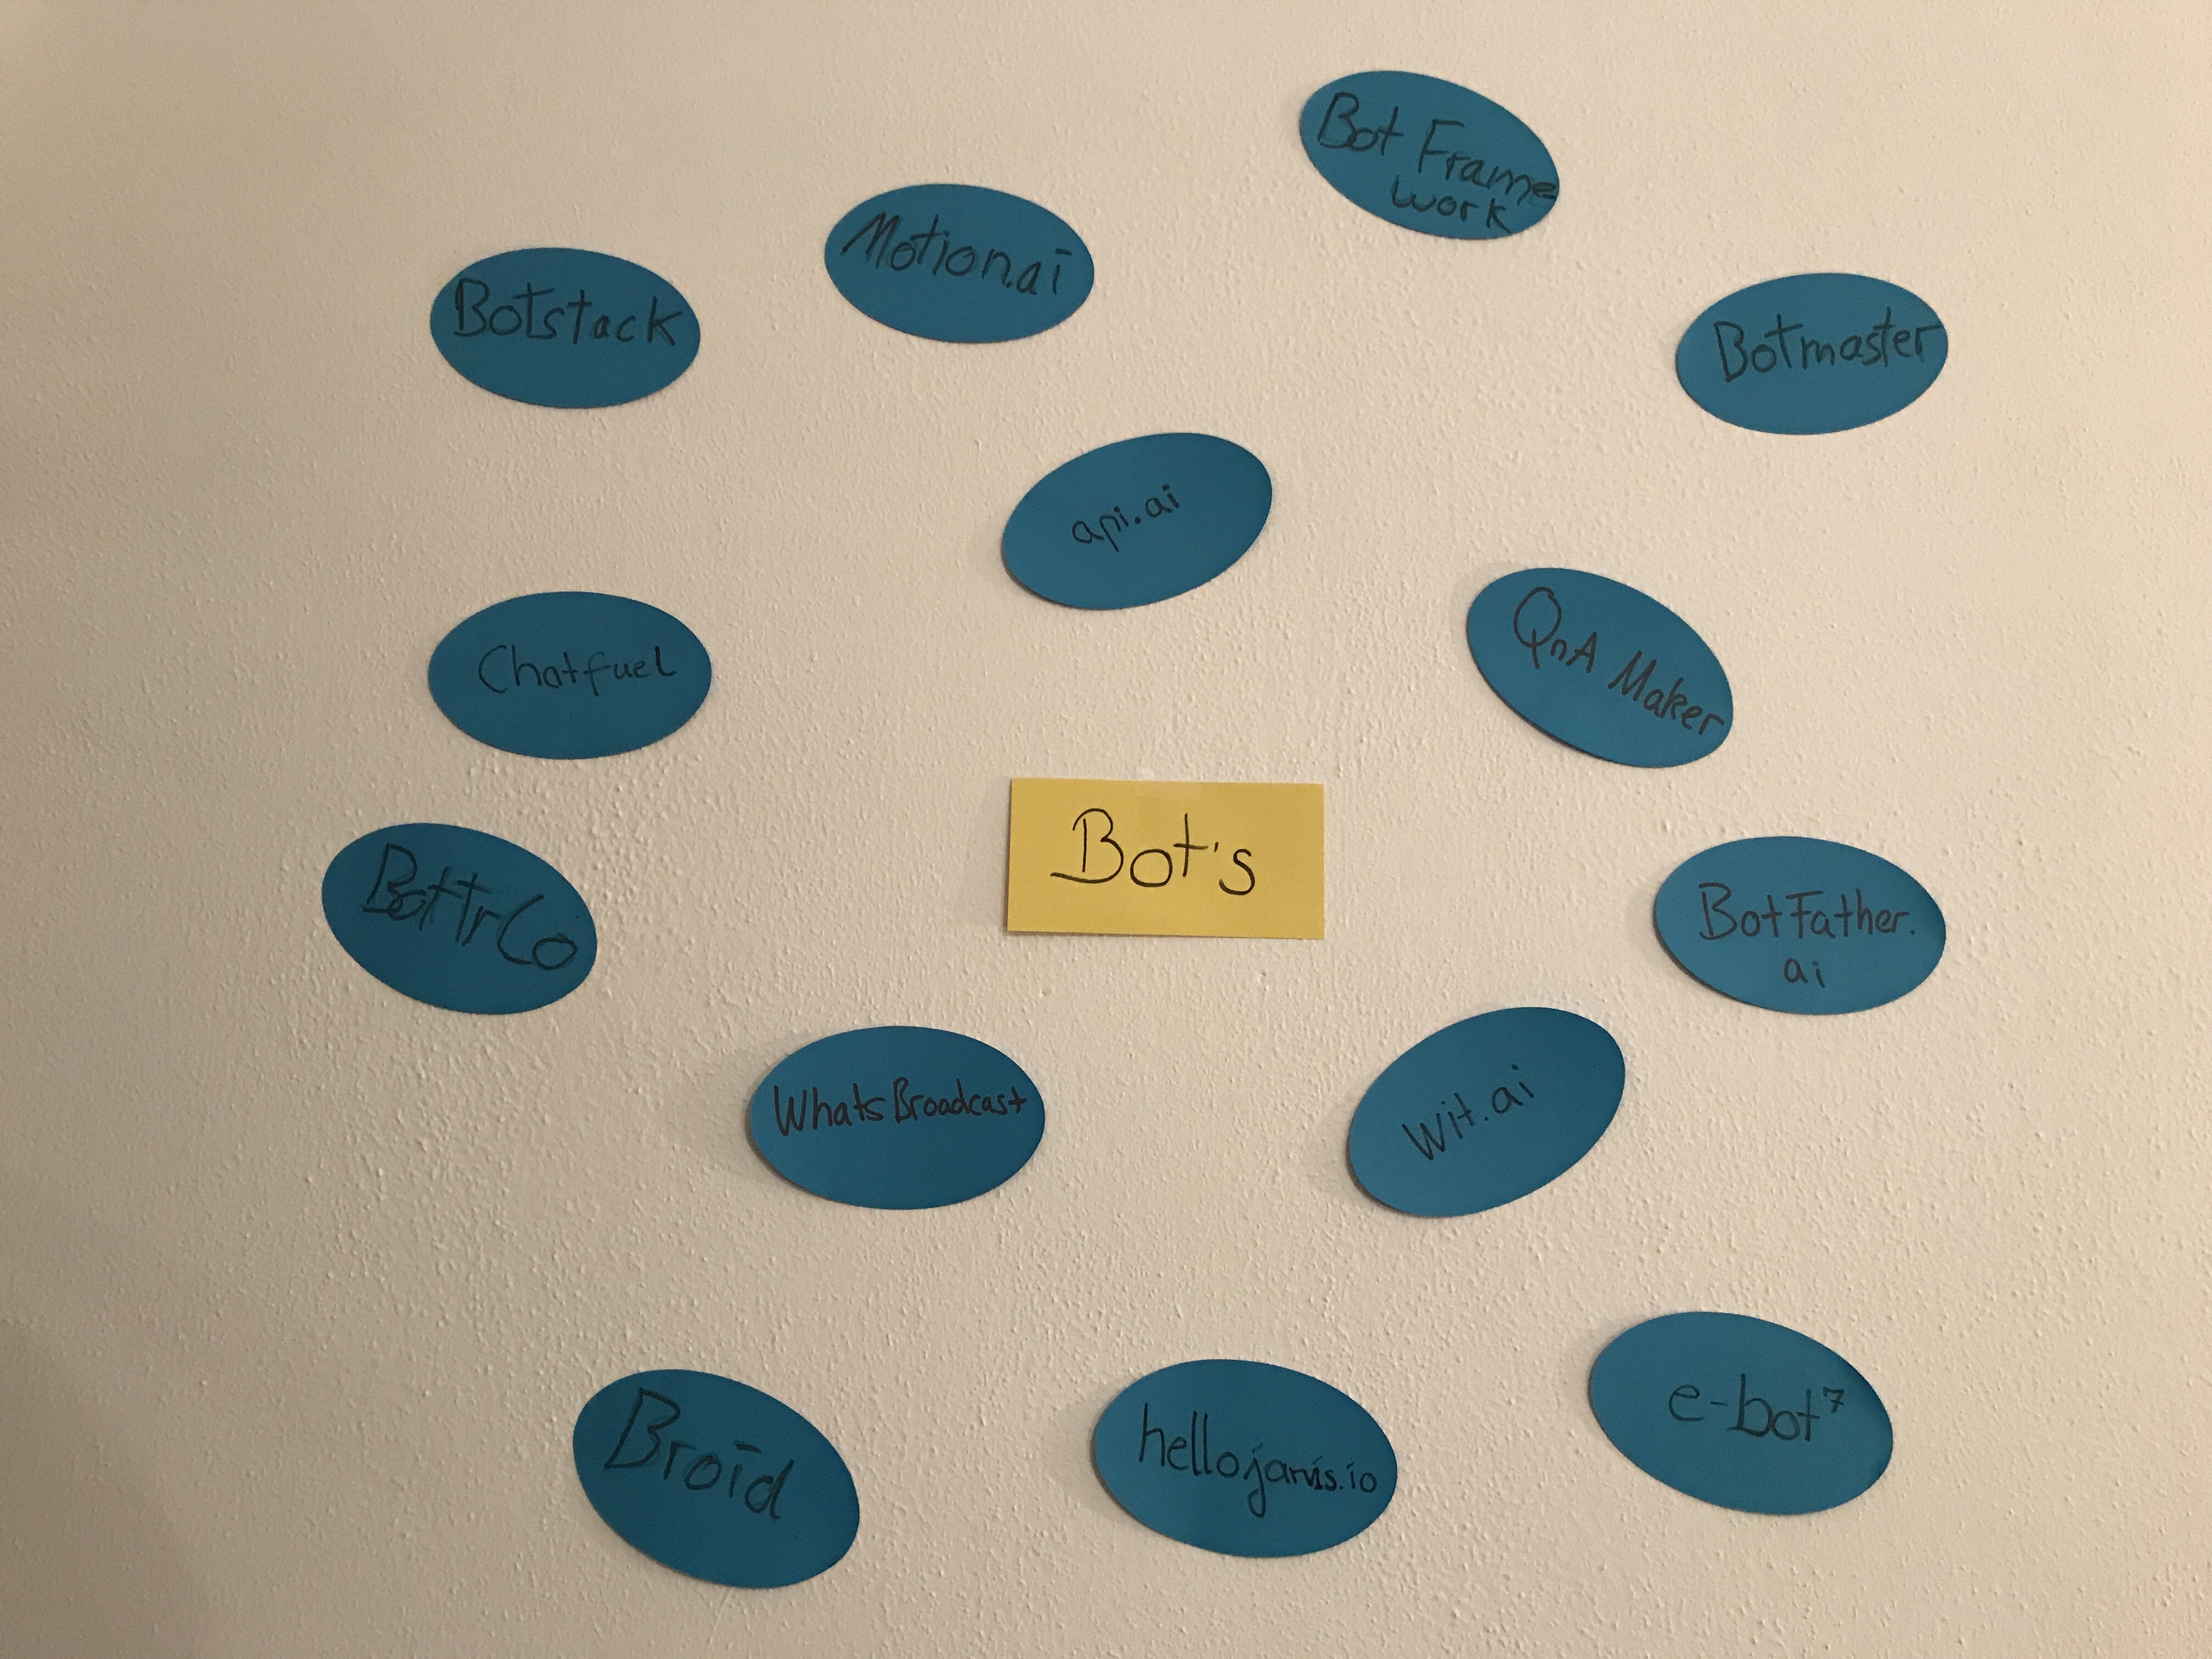 Bot Frame
work
Motion.ai
Botstack
Botmaster
api.ai
Chatfuel
QnA Maker
Bot's
BottrCo
BotFather.
ai
WhatsBroadcast
Wit.ai
Broid
hellojarvis.io
e-bot⁷